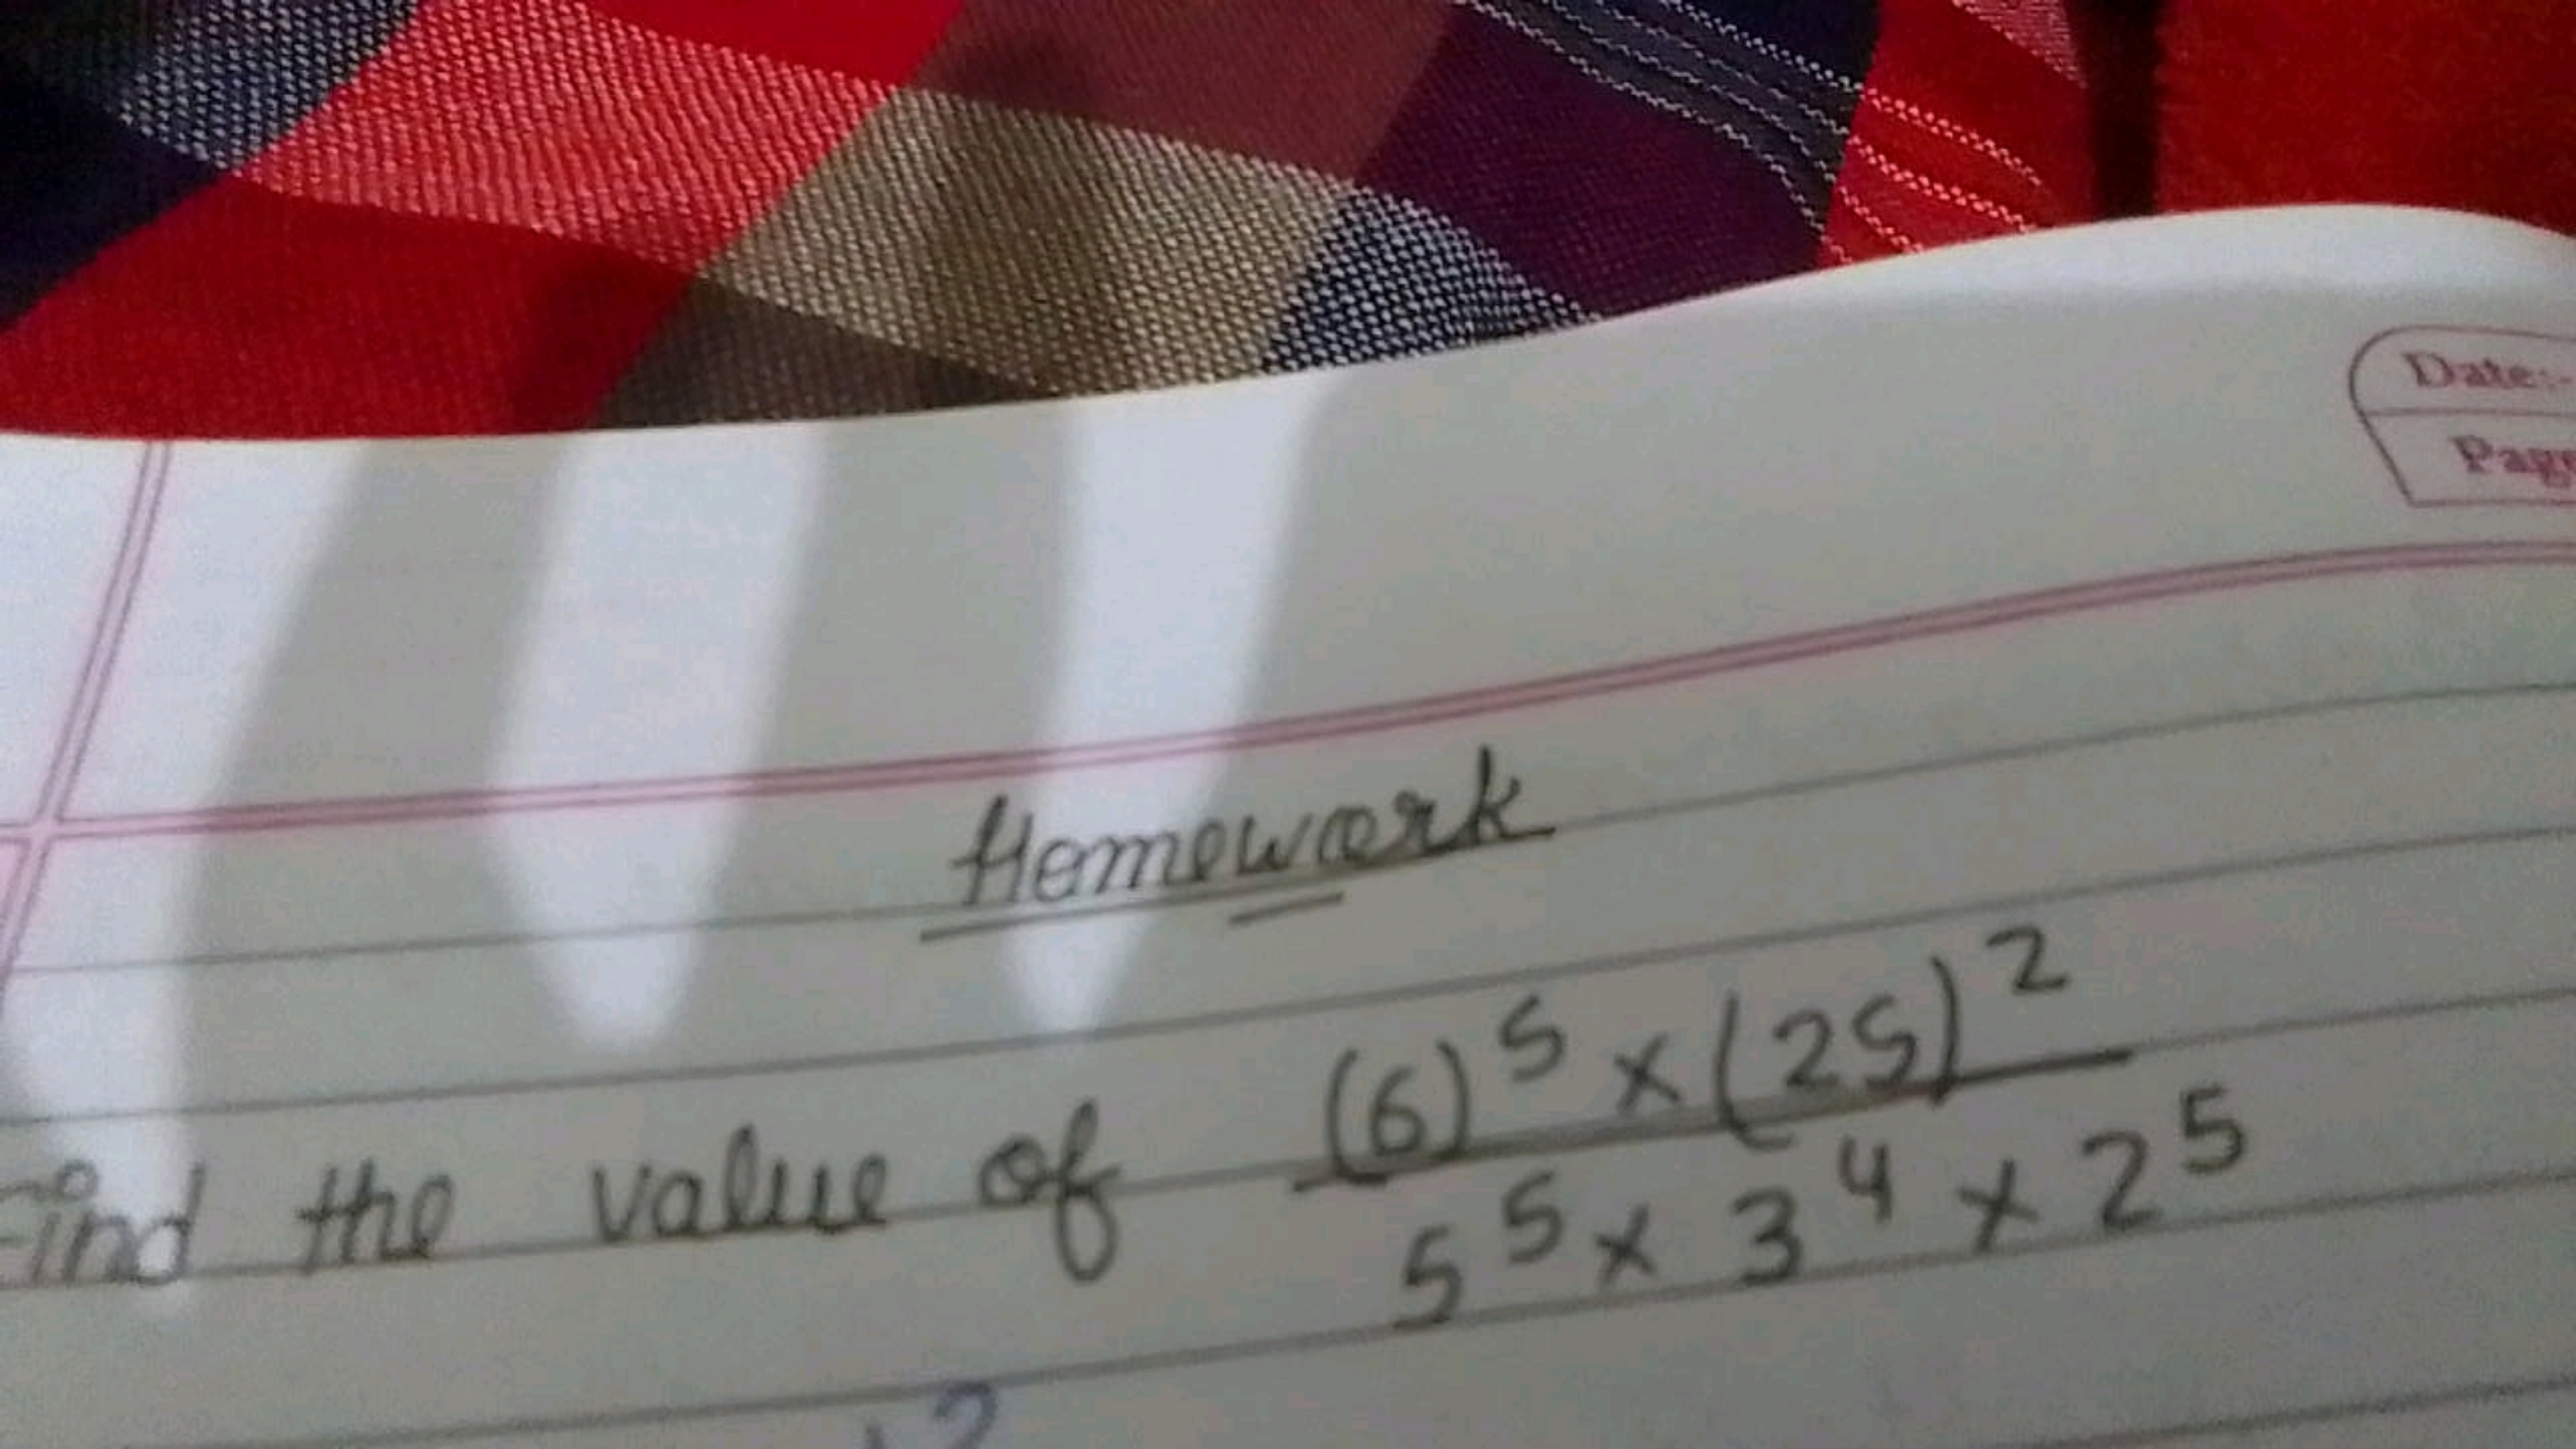 Date:-
Page
Homework
Find the value of (6)^5 x (25)^2 / 5^5 x 3^4 x 2^5